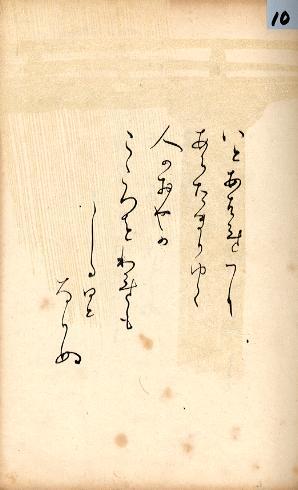 10
いとあ
あらたまりゆく
人のおやの
こゝろをわれも
しる日と
なりぬ